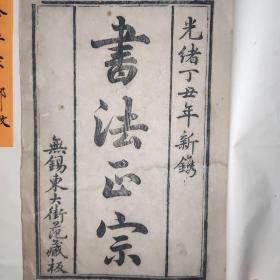 光緒丁丑年新鐫
書法正宗
無錫東大街范藏板